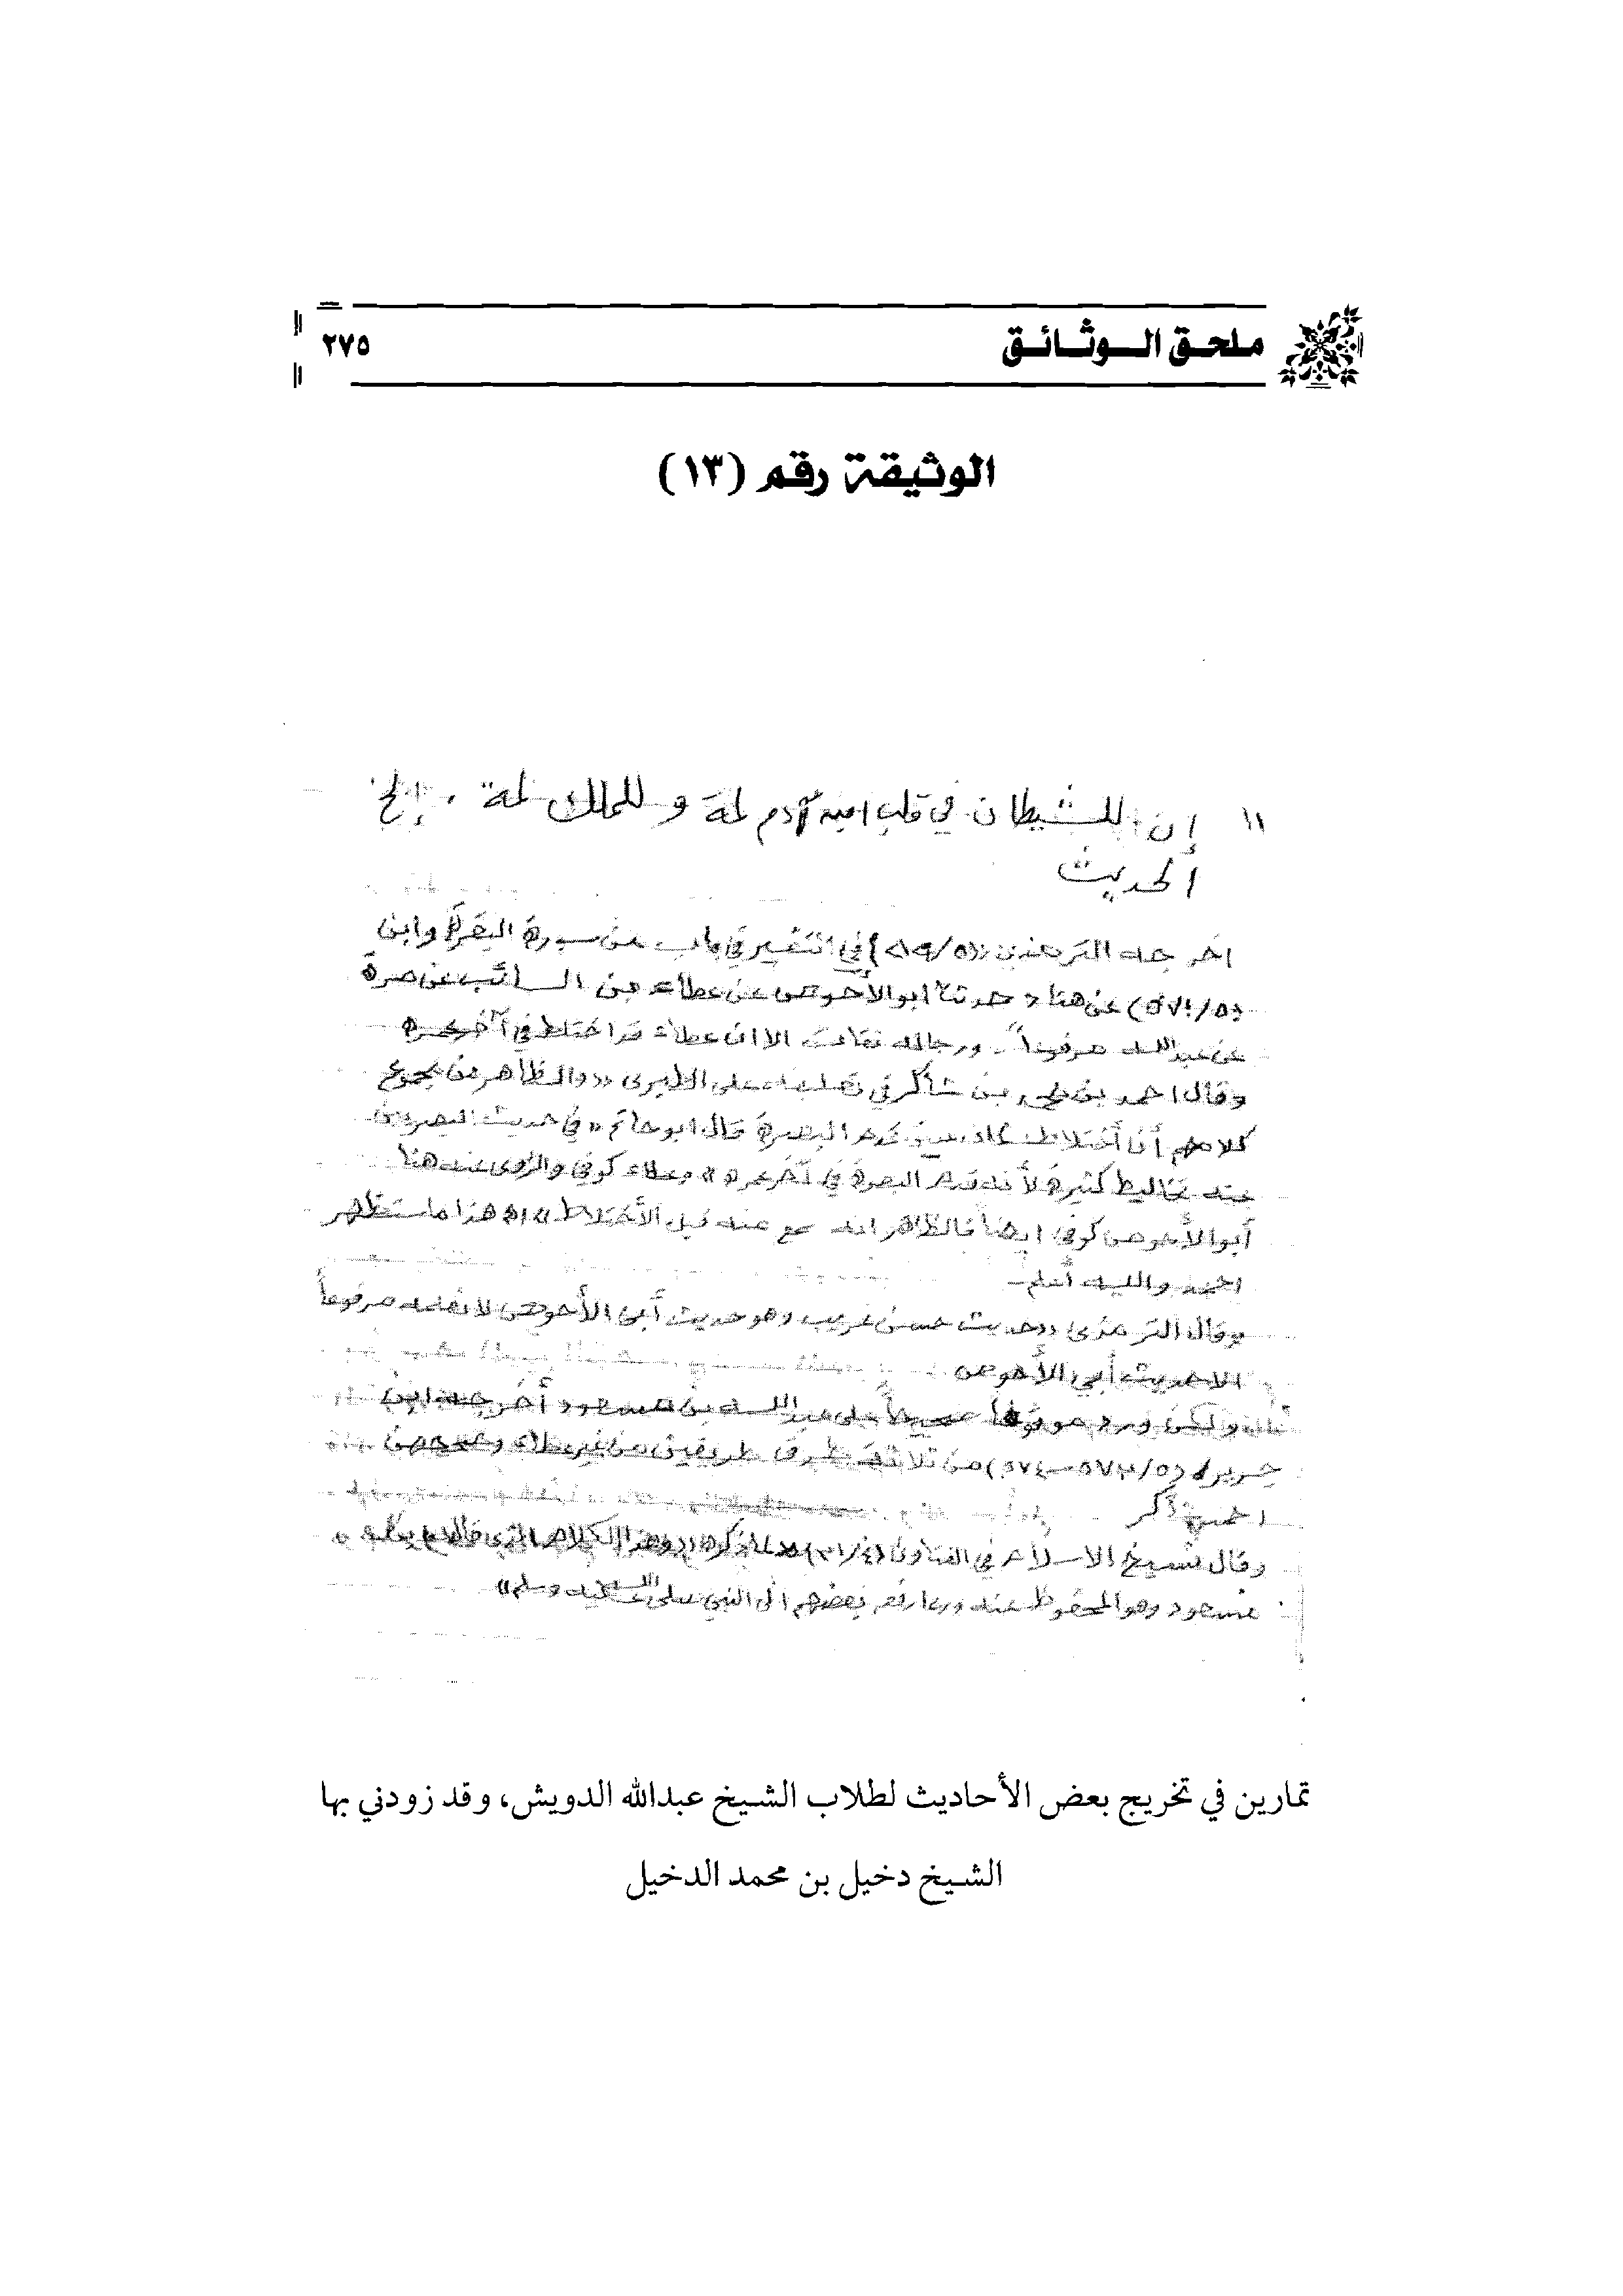 ملحق الوثائق
٢٧٥
الوثيقة رقم (١٣)
١١ إن للشيطان في قلب ابن آدم لمة وللملك لمة . إلخ
الحديث
اخرجه الترمذي في التفسير في باب من سورة البقرة وابن
عن هناد حدثنا ابو الأحوص عن عطاء بن السائب عن مرة
عن عبد الله مرفوعاً . ورجاله ثقات الا ان عطاء قد اختلط في آخر عمره
وقال احمد بن محمد بن شاكر في تعليقه على الطبري «والظاهر من مجموع
كلامهم أن أختلاطه كان حين قدم البصرة قال ابو حاتم «في حديث البصريين
عنه تخاليط كثيرة لأنه قدم البصرة في آخر عمره» وعطاء كوفي والراوي عنه هنا
أبو الأحوص كوفي ايضاً فالظاهر انه سمع عنه قبل الأختلاط» اه هذا ما استظهر
احمد والله أعلم -
وقال الترمذي «حديث حسن غريب وهو حديث أبي الأحوص لا نعلمه مرفوعاً
الا حديث أبي الأحوص
ولكن ورد موقوفاً صحيحاً على عبد الله بن مسعود أخرجه ابن
جرير من ثلاثة طرق طريقين من غير عطاء
وقال شيخ الاسلام في الفتاوى وهذا الكلام الذي قاله
مسعود وهو المحفوظ عنه وربما رفعه بعضهم الى النبي صلى الله عليه وسلم»
تمارين في تخريج بعض الأحاديث لطلاب الشيخ عبدالله الدويش، وقد زودني بها
الشيخ دخيل بن محمد الدخيل